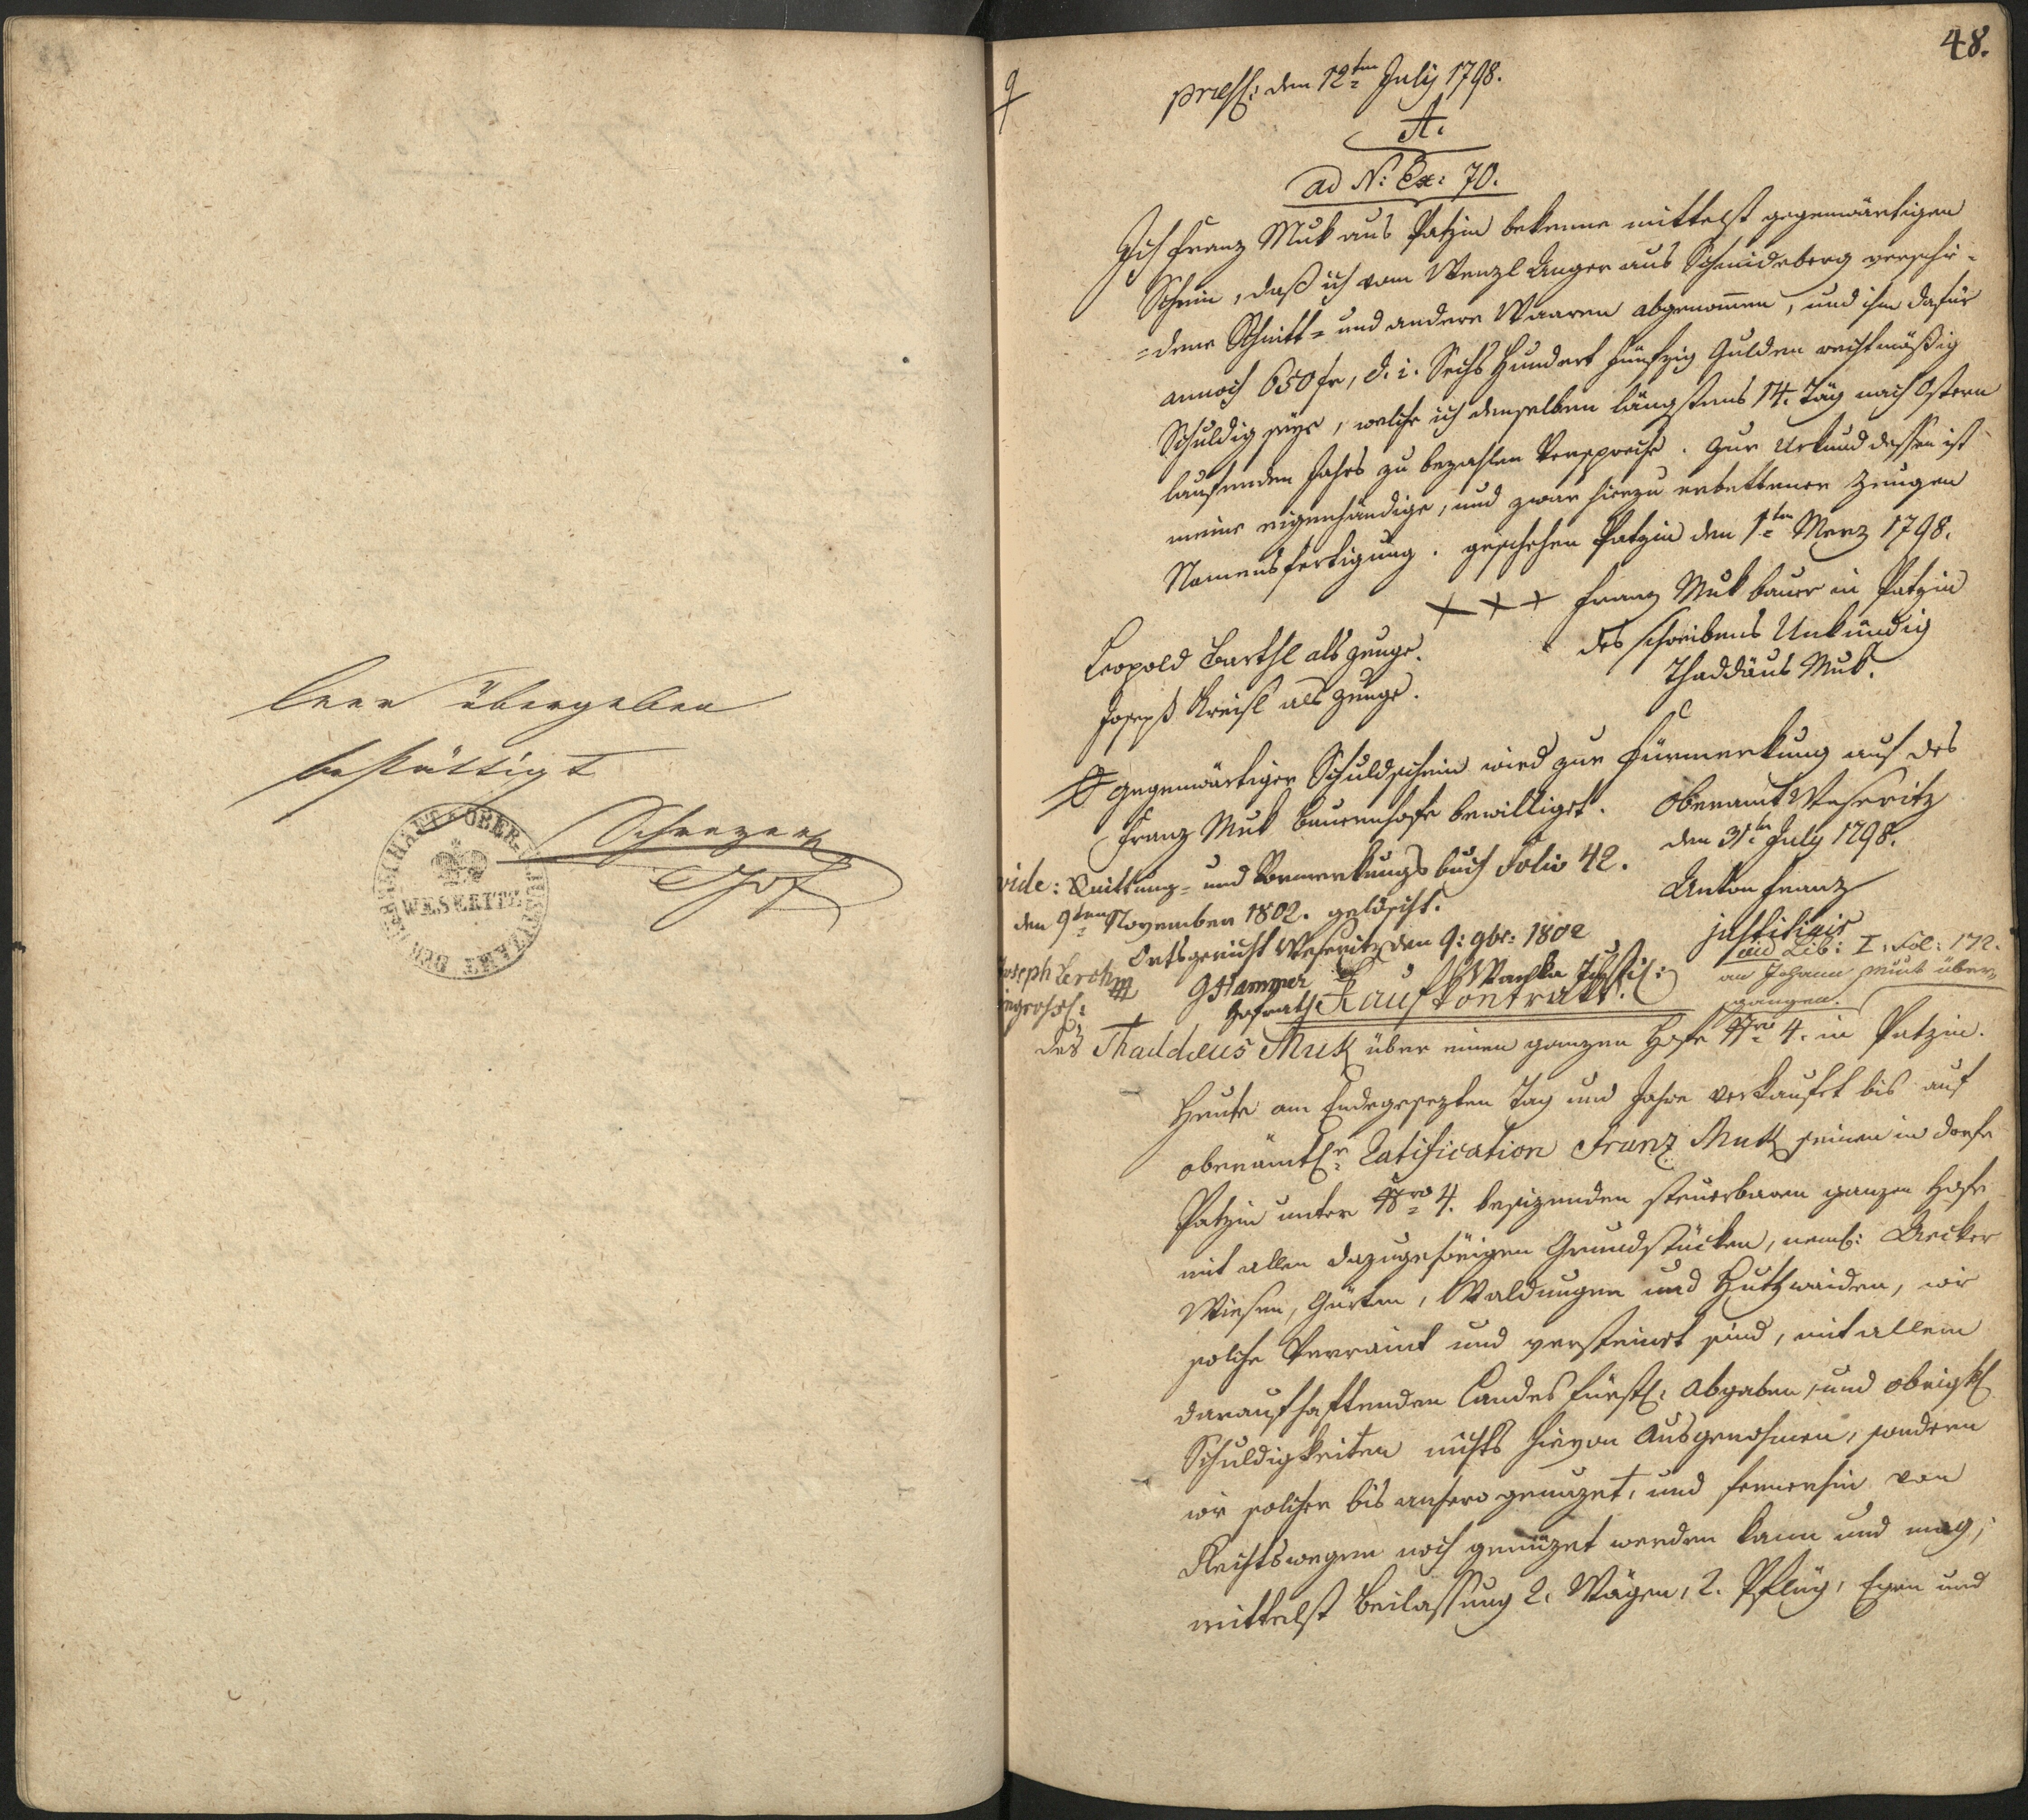 leer übergeben
bestättigt
HERRSCHAFT OBER- U. JUSTIZAMT DER
WESERITZ
48.
praes: den 12ten July 1798.
A.
ad N: Ex: 70.
Ich Franz Muk aus Patzin bekenne mittelst gegenwärtigen
Schein, daß ich vom Wenzl Unger aus Schmideberg verschie-
=dene Schnitt= und andere Waaren abgenom̄en, und ihm dafür
annoch 650 fr, d. i. Sechs Hundert fünfzig Gulden rechtmäßig
Schuldig seye, welche ich demselben längstens 14. Täg nach Ostern
laufenden Jahrs zu bezahlen Verspreche. Zur Urkund dessen ist
meine eigenhändige, und zwar hierzu erbettener Zeugen
Namensfertigung. geschehen Patzin den 1ten Merz 1798.
+ + + Franz Muk bauer in Patzin
des schreibens Unkündig
Thaddäus Muk.
Leopold Barthl als zeuge.
Joseph Kreisl als zeuge.
Gegenwärtiger Schuldschein wird zur Fürmerkung auf des
Franz Muk Bauernhofe bewilliget. Oberamt Weseritz
den 31ten July 1798.
Anton Franz
justitiair
vide: Quittung= und Vormerkungsbuch Folio 42.
den 9ten November 1802. gelöscht.
Ortsgericht Weseritz den 9: 9br: 1802
Joseph Lerch
ingross:
GHammer
Hofrath
Wanka Justit:
vid Lib: I. Fol: 172.
an Johann Muk über-
gangen.
Kauf Kontrakt.
des Thaddæus Muk über einen ganzen Hofe Nro 4. in Patzin.
Heute am Endegesezten Tag und Jahre verkaufet bis auf
oberämtlr Ratification Franz Muk seinen in dorfe
Patzin unter Nro 4. besizenden steuerbaren ganzen Hofe
mit allen dazugehörigen Grundstücken, neml: Aecker
Wiesen, Gärten, Waldungen und Huthweiden, wie
solche Verraint und versteinet sind, mit allem
daraufhaftenden Landesfürstl: Abgaben, und obrigkl
Schuldigkeiten nichts hievon Ausgenohmen, sondern
wie solcher bis anhero genuzet, und fernerhin von
Rechtswegen noch genüzet werden kann und mag,
mittelst Beilassung 2. Wägen, 2. Pflüg, Egen und